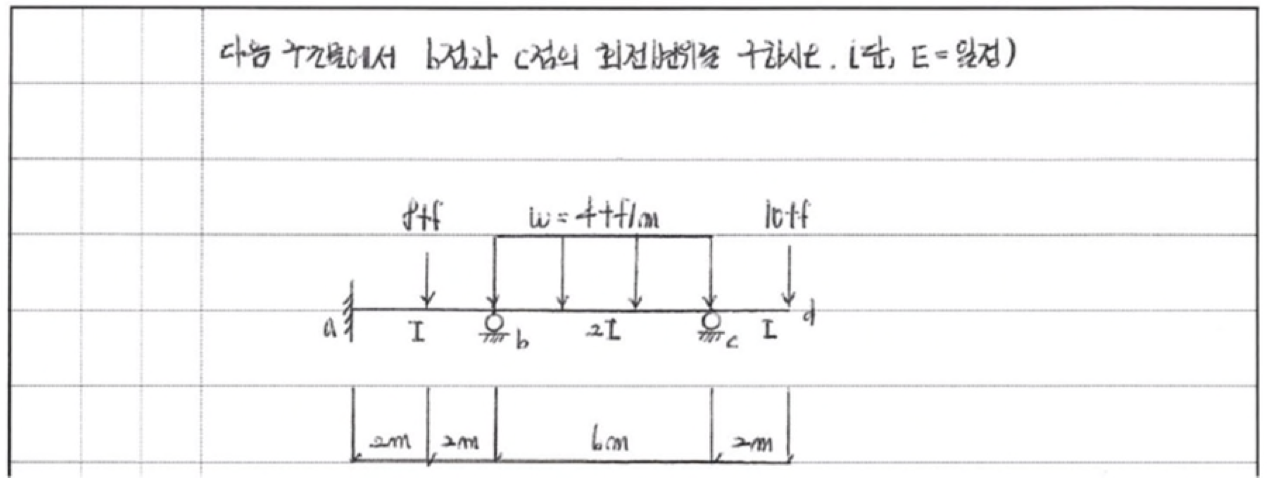 다음 구조물에서 b점과 c점의 회전변위를 구하시오. (단, E = 일정)
8tf w = 4tf/m 10tf
a I b 2I c I d
2m 2m 6m 2m